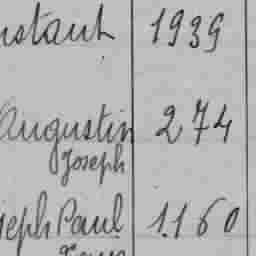 nstant 1939
Augustin 274
Joseph
seph Paul 1.160